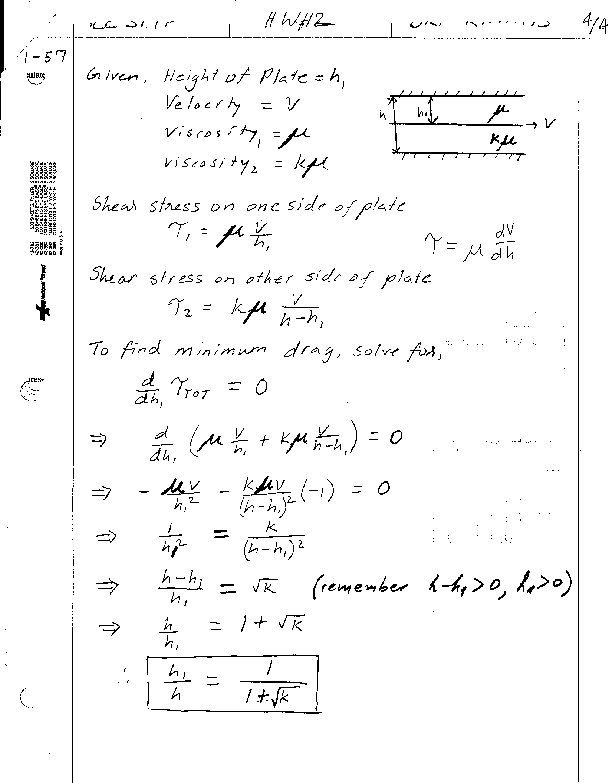 HW#2
4/4
1-57
Given, Height of Plate = h₁
Velocity = V
viscosity₁ = μ
viscosity₂ = kμ
h h₁ μ V
kμ
Shear stress on one side of plate
τ₁ = μ V/h₁
τ = μ dV/dh
Shear stress on other side of plate
τ₂ = kμ V/(h-h₁)
To find minimum drag, solve for,
d/dh₁ τ_TOT = 0
⇒ d/dh₁ (μ V/h₁ + kμ V/(h-h₁)) = 0
⇒ - μV/h₁² - kμV/(h-h₁)² (-1) = 0
⇒ 1/h₁² = k/(h-h₁)²
⇒ (h-h₁)/h₁ = √k (remember h-h₁>0, h₁>0)
⇒ h/h₁ = 1 + √k
∴ h₁/h = 1/(1+√k)